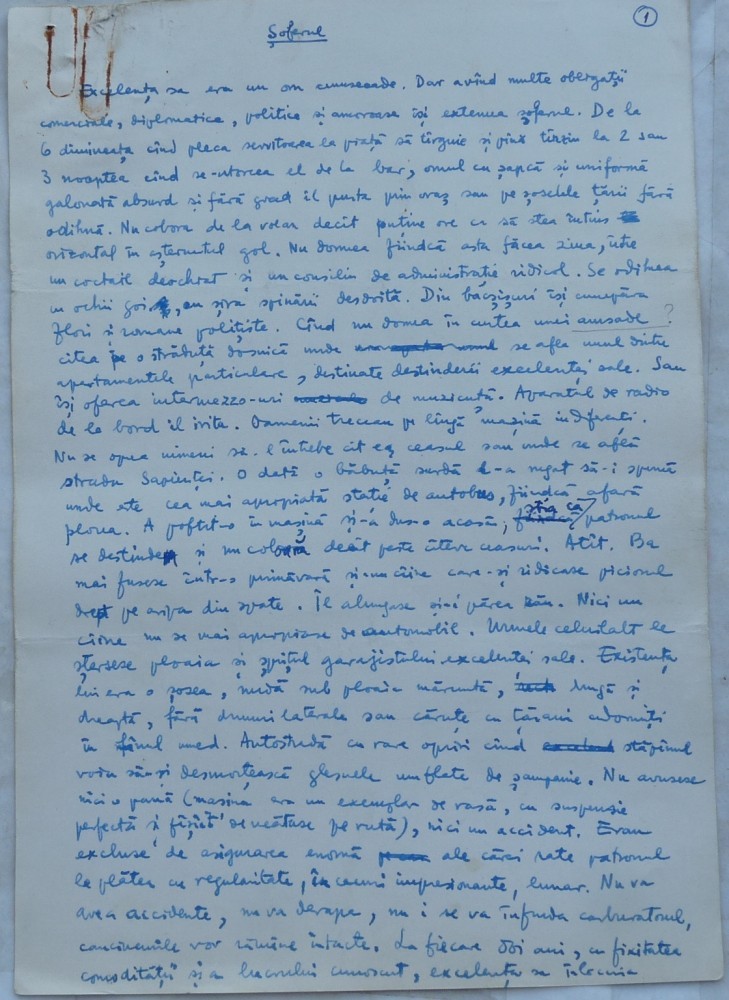 Șoferul
1
Excelența sa era un om cumsecade. Dar avînd multe obligații
comerciale, diplomatice, politice și amoroase își extenua șoferul. De la
6 dimineața cînd pleca servitoarea la piață să tîrguie și pînă tîrziu la 2 sau
3 noaptea cînd se-ntorcea el de la bar, omul cu șapcă și uniformă
galonată absurd și fără grad îl purta prin oraș sau pe șoselele țării fără
odihnă. Nu cobora de la volan decît puține ore ca să stea întins
orizontal în așternutul gol. Nu dormea fiindcă asta făcea ziua, între
un coctail deochiat și un consiliu de administrație ridicol. Se odihnea
cu ochii goi, cu șira spinării desdoită. Din bacșișuri își cumpăra
flori și romane polițiste. Cînd nu dormea în curtea unei ambasade ?
citea pe o străduță dosnică unde se afla unul dintre
apartamentele particulare, destinate destinderii excelenței sale. Sau
își oferea intermezzo-uri de muzicuță. Aparatul de radio
de la bord îl irita. Oamenii treceau pe lîngă mașină indiferenți.
Nu se oprea nimeni să-l întrebe cît e ceasul sau unde se află
strada Sapienței. O dată o băbuță surdă l-a rugat să-i spună
unde este cea mai apropiată stație de autobus, fiindcă afară
ploua. A poftit-o în mașină și-a dus-o acasă, știa că patronul
se destinde și nu coboară decît peste cîteva ceasuri. Atît. Ba
mai fusese într-o primăvară și-un cîine care-și ridicase piciorul
drept pe aripa din spate. Îl alungase și-i părea rău. Nici un
cîine nu se mai apropiase de automobil. Urmele celuilalt le
ștersese ploaia și șprițul garajistului excelenței sale. Existența
lui era o șosea, nudă sub ploaia măruntă, lungă și
dreaptă, fără drumuri laterale sau căruțe cu țărani adormiți
în fînul umed. Autostradă cu rare opriri cînd stăpînul
voia să-și desmorțească gleznele umflate de șampanie. Nu avusese
nici o pană (mașina era un exemplar de rasă, cu suspensie
perfectă și fîșîit de mătase pe rută), nici un accident. Erau
excluse de asigurarea enormă ale cărei rate patronul
le plătea cu regularitate, în cecuri impresionante, lunar. Nu va
avea accidente, nu va derapa, nu i se va înfunda carburatorul,
cauciucurile vor rămîne intacte. La fiecare doi ani, cu fixitatea
comodității și a lucrului cunoscut, excelența sa înlocuia